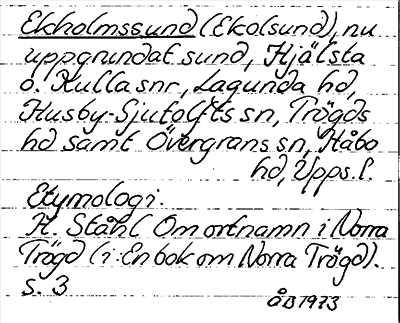 Ekholmssund (Ekolsund), nu
uppgrundat sund, Hjälsta
o. Kulla snr, Lagunda hd,
Husby-Sjutolfts sn, Trögds
hd samt Övergrans sn, Håbo
hd, Upps. l.
Etymologi.
H. Ståhl Om ortnamn i Norra
Trögd (i: En bok om Norra Trögd).
S. 3
ÅB 1973